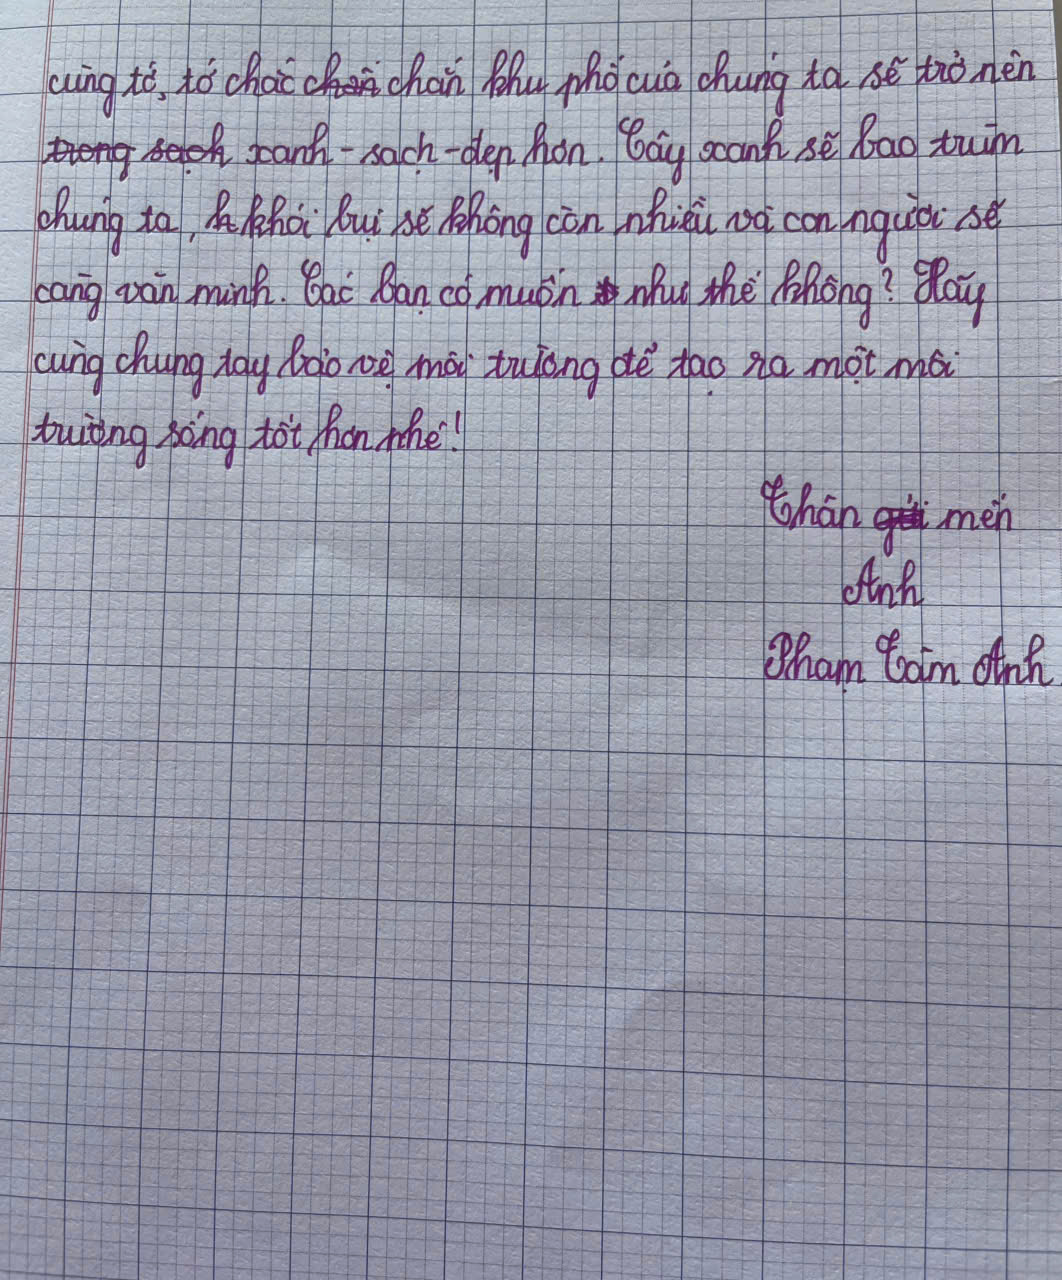 cùng tớ, tớ chắc chắn chắn khu phố của chúng ta sẽ trở nên
trong sạch xanh - sạch - đẹp hơn. Cây xanh sẽ bao trùm
chúng ta, k khói bụi sẽ không còn nhiều và con người sẽ
càng văn minh. Các bạn có muốn như thế không? Hãy
cùng chung tay bảo vệ môi trường để tạo ra một môi
trường sống tốt hơn nhé!
Thân gửi mến
Anh
Phạm Trâm Anh